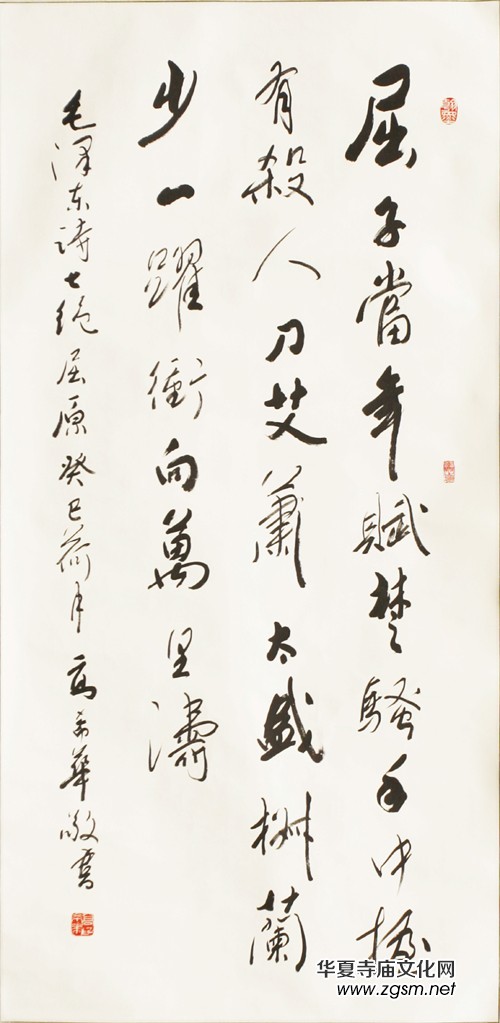 屈子當年賦楚騷手中握
有殺人刀艾蕭太盛椒蘭
少一躍衝向萬里濤
毛泽东诗七绝屈原癸巳荷月高希華敬書
华夏寺庙文化网
www.zgsm.net